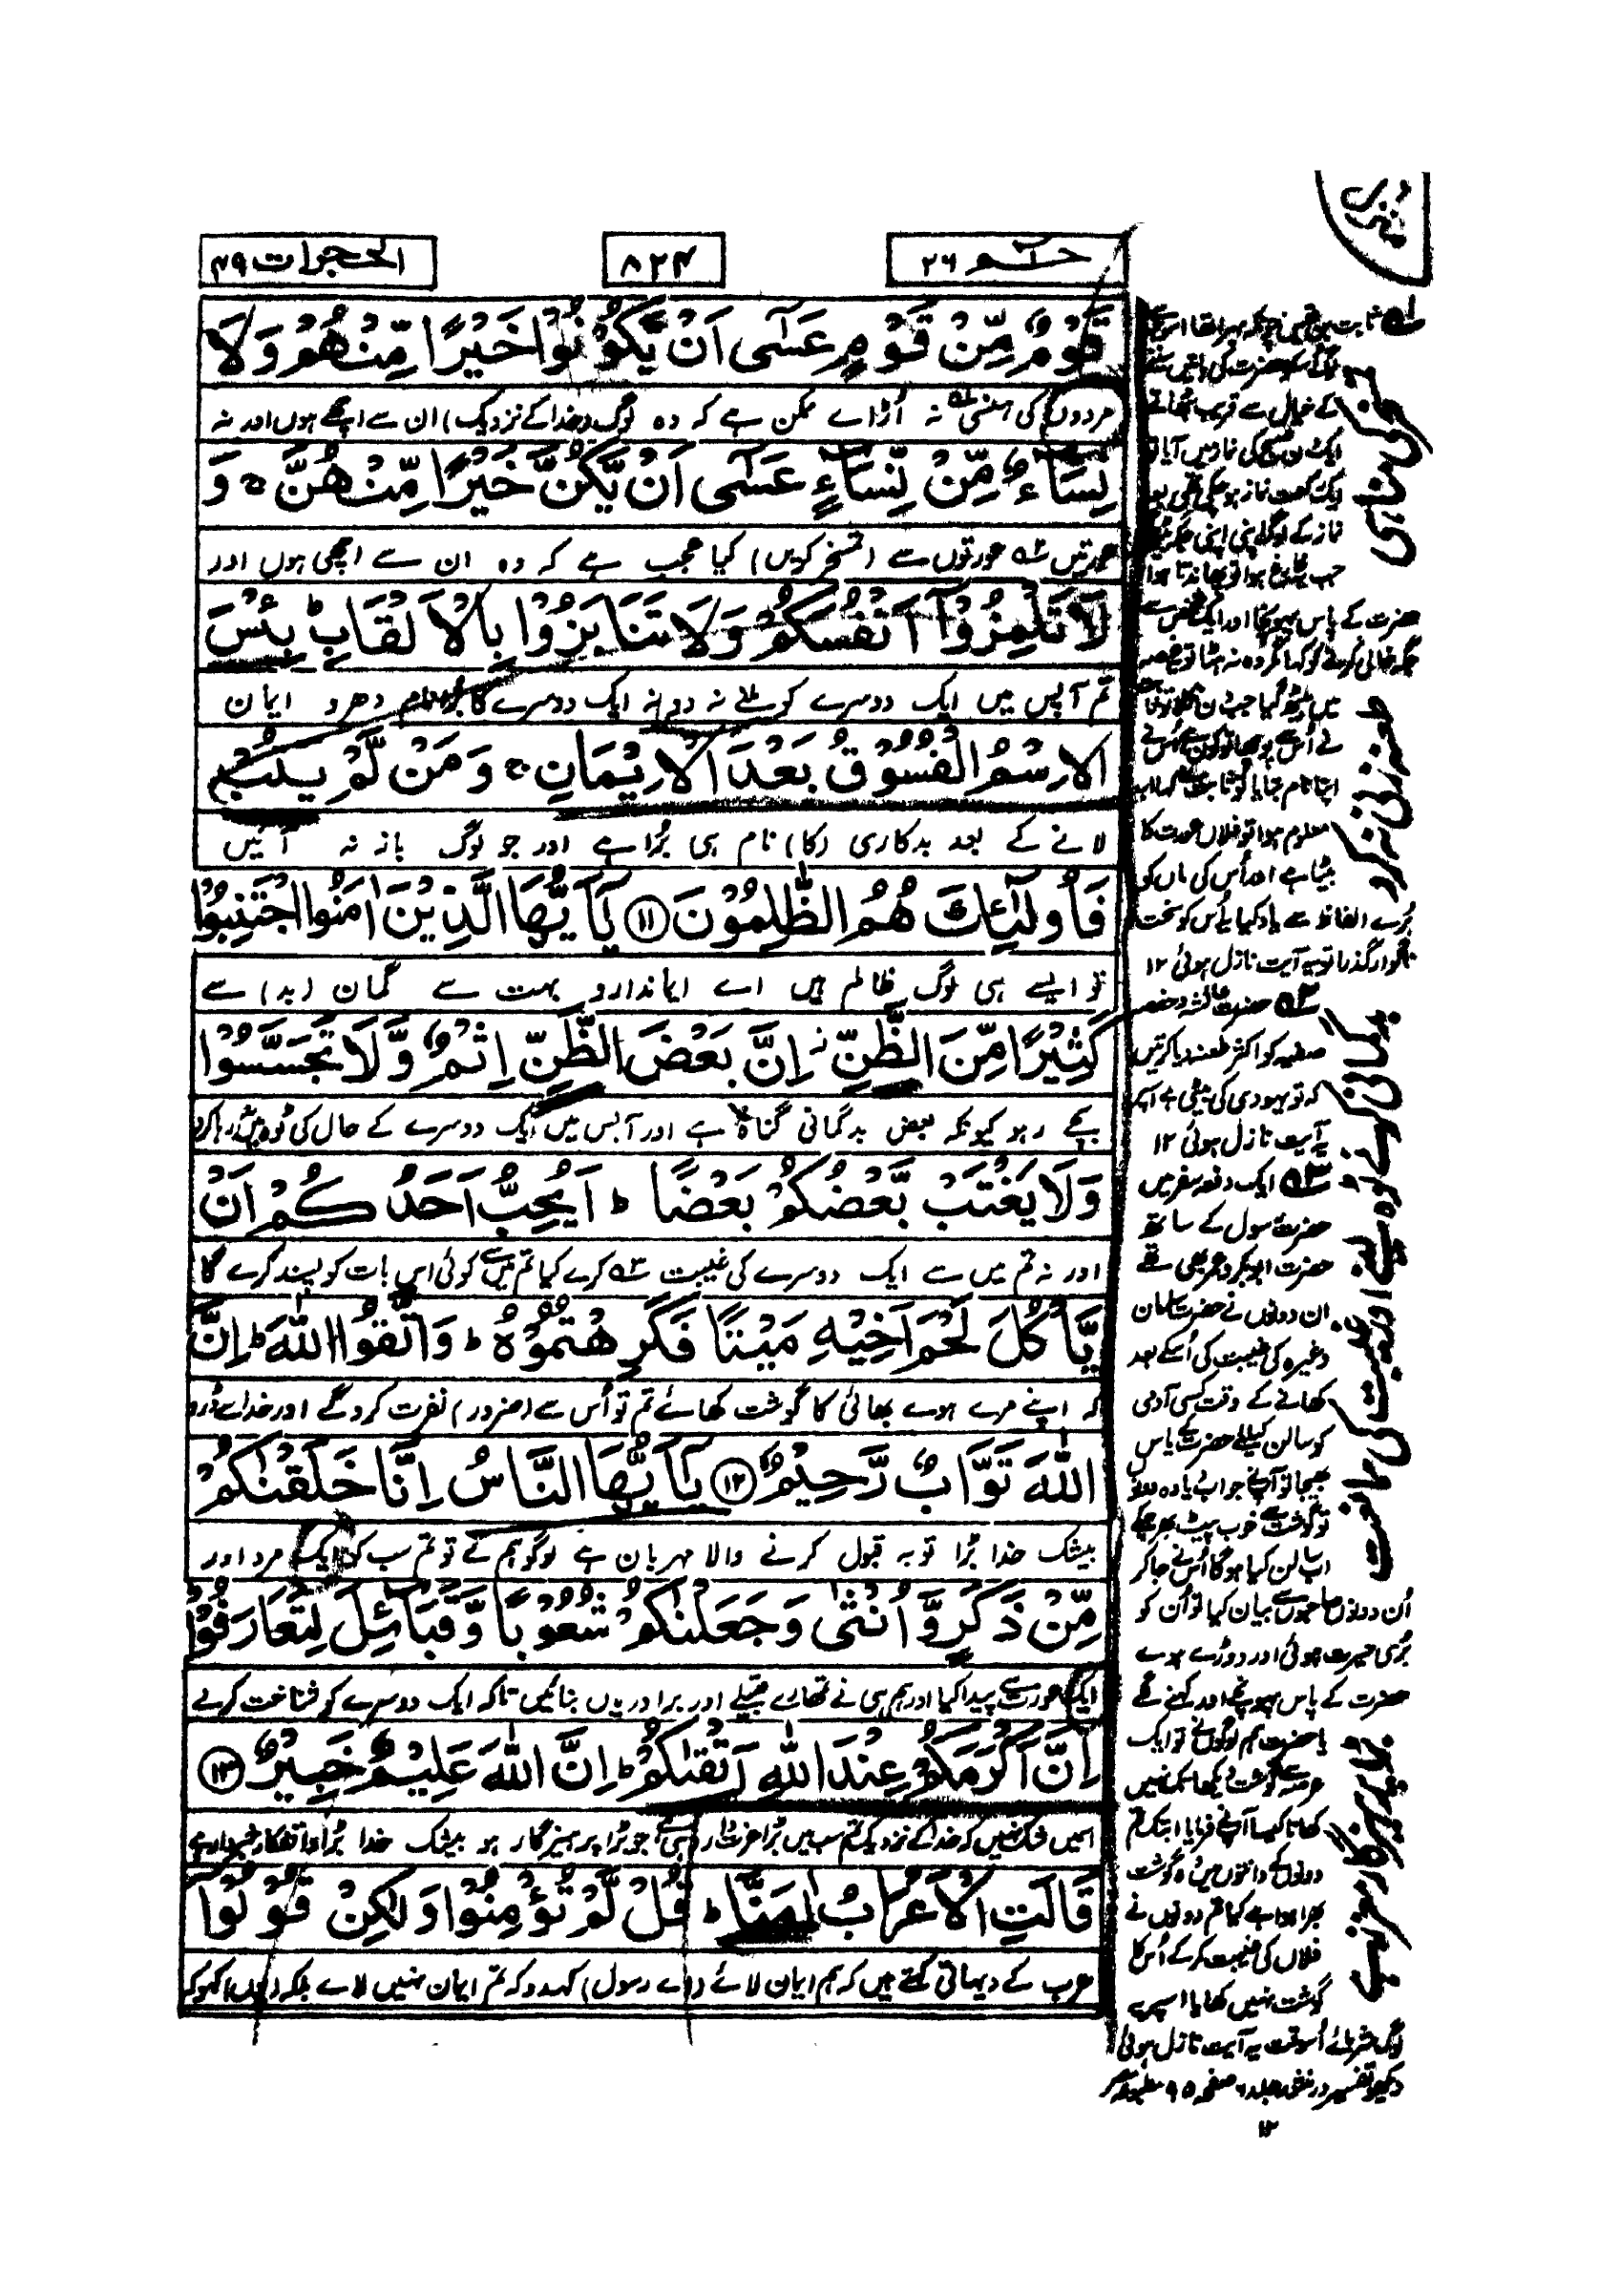 حٰمٓ ٢٦
٨٢٤
الحجرات ٤٩
قَوْمٌ مِّنْ قَوْمٍ عَسٰٓى اَنْ يَّكُوْنُوْا خَيْرًا مِّنْهُمْ وَلَا
مردوں کی ہنسی نہ اُڑاے ممکن ہے کہ وہ لوگ (خدا کے نزدیک) ان سے اچھے ہوں اور نہ
نِسَآءٌ مِّنْ نِّسَآءٍ عَسٰٓى اَنْ يَّكُنَّ خَيْرًا مِّنْهُنَّ ۚ وَ
عورتیں عورتوں سے (تمسخر کریں) کیا عجب ہے کہ وہ ان سے اچھی ہوں اور
لَا تَلْمِزُوْٓا اَنْفُسَكُمْ وَلَا تَنَابَزُوْا بِالْاَلْقَابِ ؕ بِئْسَ
تم آپس میں ایک دوسرے کو طعنے نہ دو نہ ایک دوسرے کا بُرا نام دھرو ایمان
الِاسْمُ الْفُسُوْقُ بَعْدَ الْاِيْمَانِ ۚ وَمَنْ لَّمْ يَتُبْ
لانے کے بعد بدکاری (کا) نام ہی بُرا ہے اور جو لوگ باز نہ آئیں
فَاُولٰٓئِكَ هُمُ الظّٰلِمُوْنَ ١١ يٰٓاَيُّهَا الَّذِيْنَ اٰمَنُوا اجْتَنِبُوْا
تو ایسے ہی لوگ ظالم ہیں اے ایماندارو بہت سے گمان (بد) سے
كَثِيْرًا مِّنَ الظَّنِّ ۫ اِنَّ بَعْضَ الظَّنِّ اِثْمٌ وَّلَا تَجَسَّسُوْا
بچے رہو کیونکہ بعض بدگمانی گناہ ہے اور آپس میں ایک دوسرے کے حال کی ٹوہ میں نہ رہا کرو
وَلَا يَغْتَبْ بَّعْضُكُمْ بَعْضًا ؕ اَيُحِبُّ اَحَدُكُمْ اَنْ
اور نہ تم میں سے ایک دوسرے کی غیبت کرے کیا تم میں سے کوئی اس بات کو پسند کرے گا
يَّاْكُلَ لَحْمَ اَخِيْهِ مَيْتًا فَكَرِهْتُمُوْهُ ؕ وَاتَّقُوا اللّٰهَ ؕ اِنَّ
کہ اپنے مرے ہوے بھائی کا گوشت کھائے تم تو اُس سے (ضرور) نفرت کروگے اور خدا سے ڈرو
اللّٰهَ تَوَّابٌ رَّحِيْمٌ ١٢ يٰٓاَيُّهَا النَّاسُ اِنَّا خَلَقْنٰكُمْ
بیشک خدا بڑا توبہ قبول کرنے والا مہربان ہے لوگو ہم نے تو تم سب کو ایک مرد اور
مِّنْ ذَكَرٍ وَّاُنْثٰى وَجَعَلْنٰكُمْ شُعُوْبًا وَّقَبَآئِلَ لِتَعَارَفُوْا
ایک عورت سے پیدا کیا اور ہم ہی نے تمھارے قبیلے اور برادریاں بنائیں تاکہ ایک دوسرے کو شناخت کرلے
اِنَّ اَكْرَمَكُمْ عِنْدَ اللّٰهِ اَتْقٰىكُمْ ؕ اِنَّ اللّٰهَ عَلِيْمٌ خَبِيْرٌ ١٣
اسمیں شک نہیں کہ خدا کے نزدیک تم سب میں بڑا عزت دار وہی ہے جو بڑا پرہیزگار ہو بیشک خدا بڑا واقفکار خبردار ہے
قَالَتِ الْاَعْرَابُ اٰمَنَّا ؕ قُلْ لَّمْ تُؤْمِنُوْا وَلٰكِنْ قُوْلُوْٓا
عرب کے دیہاتی کہتے ہیں کہ ہم ایمان لائے (اے رسول) کہدو کہ تم ایمان نہیں لاے بلکہ (یوں) کہو کہ
لوگ اُن کو حضرت کی باتیں سننے
کے خیال سے قریب بٹھاتے
ایک دن صبح کی نماز میں آیا تو
ایک رکعت نماز ہو چکی تھی بعد
نماز کے لوگ اپنی اپنی جگہ
جب فارغ ہوا تو پھاندتا ہوا
حضرت کے پاس پہونچا اور ایک شخص سے
جگہ خالی کرنے کو کہا مگر وہ نہ ہٹا تو غصہ
میں بیٹھ گیا جب دن نکلا تو
نے اُس سے پوچھا تو کون ہے اُس نے
اپنا نام بتایا تو ثابت نے کہا اب
معلوم ہوا تو فلاں عورت کا
بیٹا ہے اور اُس کی ماں کو
بُرے الفاظ سے یاد کیا یہ اُس کو سخت
ناگوار گذرا تو یہ آیت نازل ہوئی ١٢
حضرت عائشہ و حفصہ
صفیہ کو اکثر طعنہ دیا کرتیں
کہ تو یہودی کی بیٹی ہے
یہ آیت نازل ہوئی ١٢
ایک دفعہ سفر میں
حضرت رسول کے ساتھ
حضرت ابوبکر و عمر بھی تھے
ان دونوں نے حضرت سلمان
وغیرہ کی غیبت کی اُسکے بعد
کھانے کے وقت کسی آدمی
کو سالن کیلئے حضرت کے پاس
بھیجا تو آپ نے جواب دیا وہ دونوں
تو گوشت سے خوب پیٹ بھر چکے
اب سالن کیا ہوگا اُس نے جاکر
اُن دونوں صاحبوں سے بیان کیا تو اُن کو
بڑی حیرت ہوئی اور دوڑے ہوے
حضرت کے پاس پہونچے اور کہنے لگے
یا حضرت ہم لوگوں نے تو ایک
عرصہ سے گوشت دیکھا تک نہیں
کھانا کیسا آپ نے فرمایا ابتک تم
دونوں کے دانتوں میں وہ گوشت
بھرا ہوا ہے کیا تم دونوں نے
فلاں کی غیبت کرکے اُس کا
گوشت نہیں کھایا اسپر یہ
لوگ شرمائے اُسوقت یہ آیت نازل ہوئی
دیکھو تفسیر در منثور جلد ٦ صفحہ ٩٥ مطبوعہ مصر
١٢